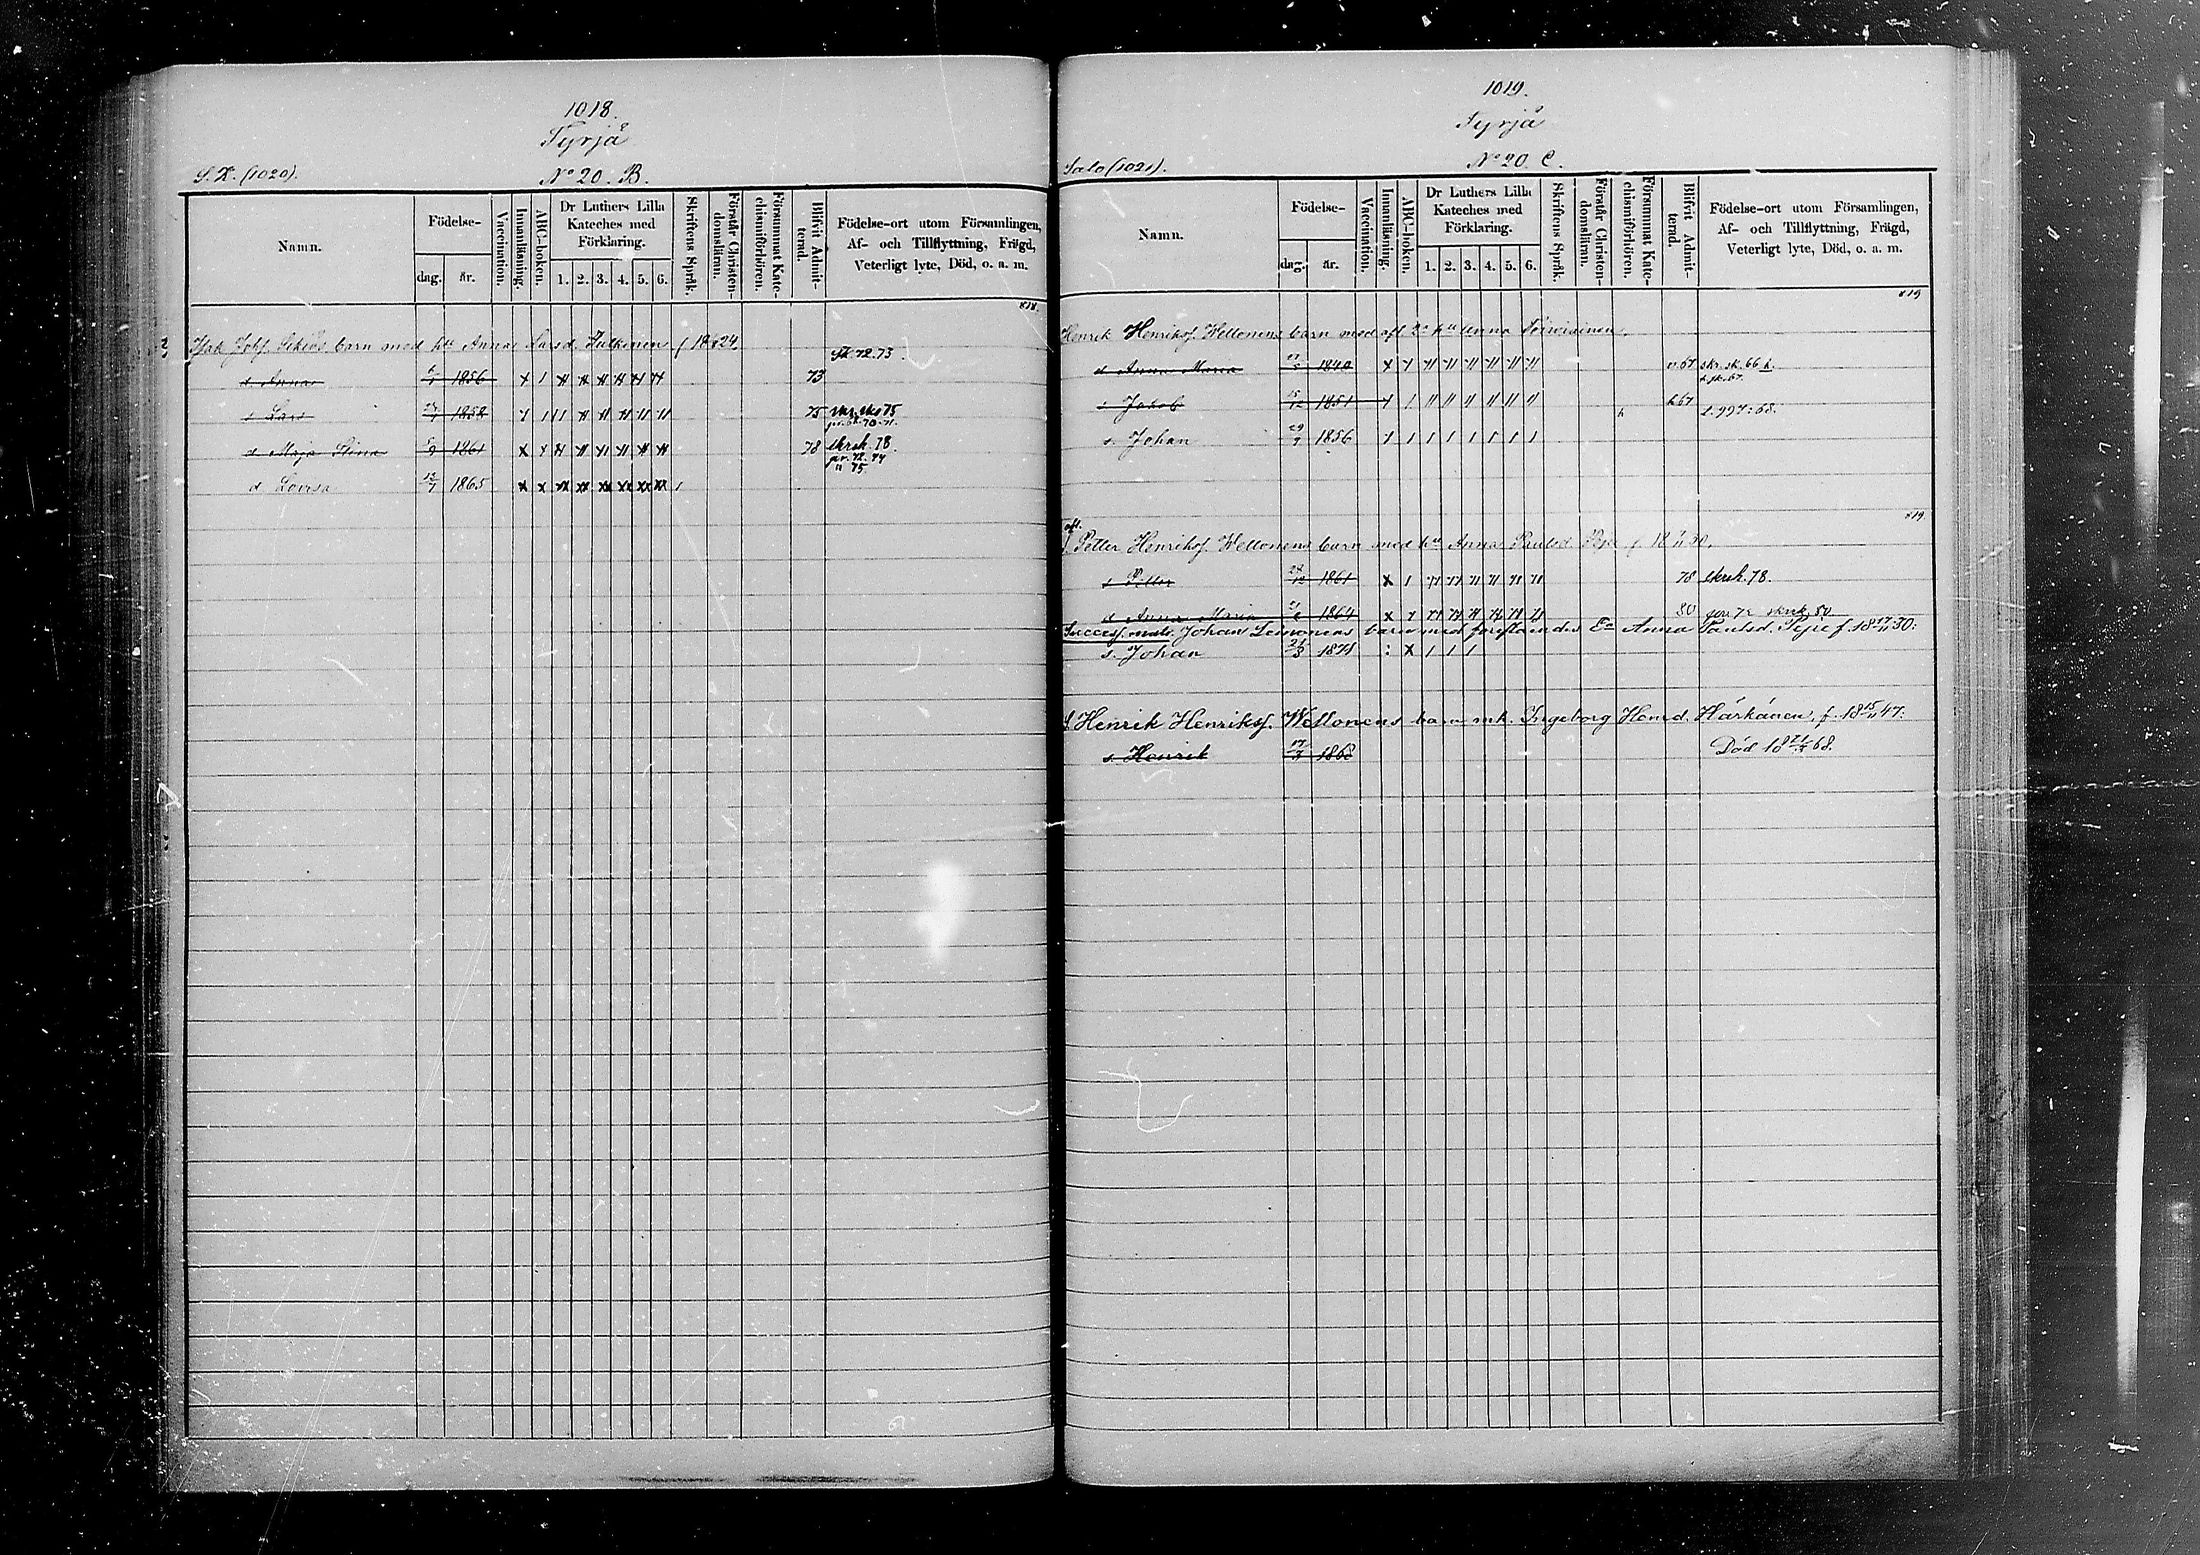 1018.
Tyrjä
S. K. (1020).
No 20. B.
Namn.
Födelse-
dag.
år.
Vaccination.
Innanläsning.
ABC-boken.
Dr Luthers Lilla Kateches med Förklaring.
1. 2. 3. 4. 5. 6.
Skriftens Språk.
Förstår Christendomsläran.
Försummat Katechismiförhören.
Blifvit Admitterad.
Födelse-ort utom Församlingen,
Af- och Tillflyttning, Frägd,
Veterligt lyte, Död, o. a. m.
818.
Isak Johs. barn med hu Anna Larsd. f 18 24.
72.73.
d Anna 1856 x 1 73
s Lars 1858 1 1 75 skr. sko 75
70-71.
d Maja Stina 5/9 1861 x 78 skrsk. 78.
pr. 72. 74
" 75.
d Lovisa 12/7 1865 x x
1019.
Tyrjä
Salo (1021).
No 20 C.
Namn.
Födelse-
dag.
år.
Vaccination.
Innanläsning.
ABC-boken.
Dr Luthers Lilla Kateches med Förklaring.
1. 2. 3. 4. 5. 6.
Skriftens Språk.
Förstår Christendomsläran.
Försummat Katechismiförhören.
Blifvit Admitterad.
Födelse-ort utom Församlingen,
Af- och Tillflyttning, Frägd,
Veterligt lyte, Död, o. a. m.
819
Henrik Henriksf. Wellonens barn med afl. 2a hu Anna
d Anna Maria x v. 67 skr. sk. 66 h.
h. sk. 67.
s Jakob 15/12 1851 1 h 67 1.997:68.
s. Johan 29/9 1856 1 1 1 1 1 1 1
819.
afl.
Petter Henriksf. Wellonens barn med hu Anna Paulsd. f. 18 30.
s Petter 28/12 1861 x 1 78 skrsk. 78.
d Anna Maria 1864 x 80 72 skrsk. 80.
Success. Johan barn med föreståendes Ea Anna Paulsd. f 18 17/11 30:
s. Johan 21/3 1871 : x 1 1 1
Henrik Henriksf. Wellonens barn mh. Ingeborg Henrd. Härkänen, f. 18 15/11 47:
s. Henrik 17/3 1868 Död 18 21/3 68.